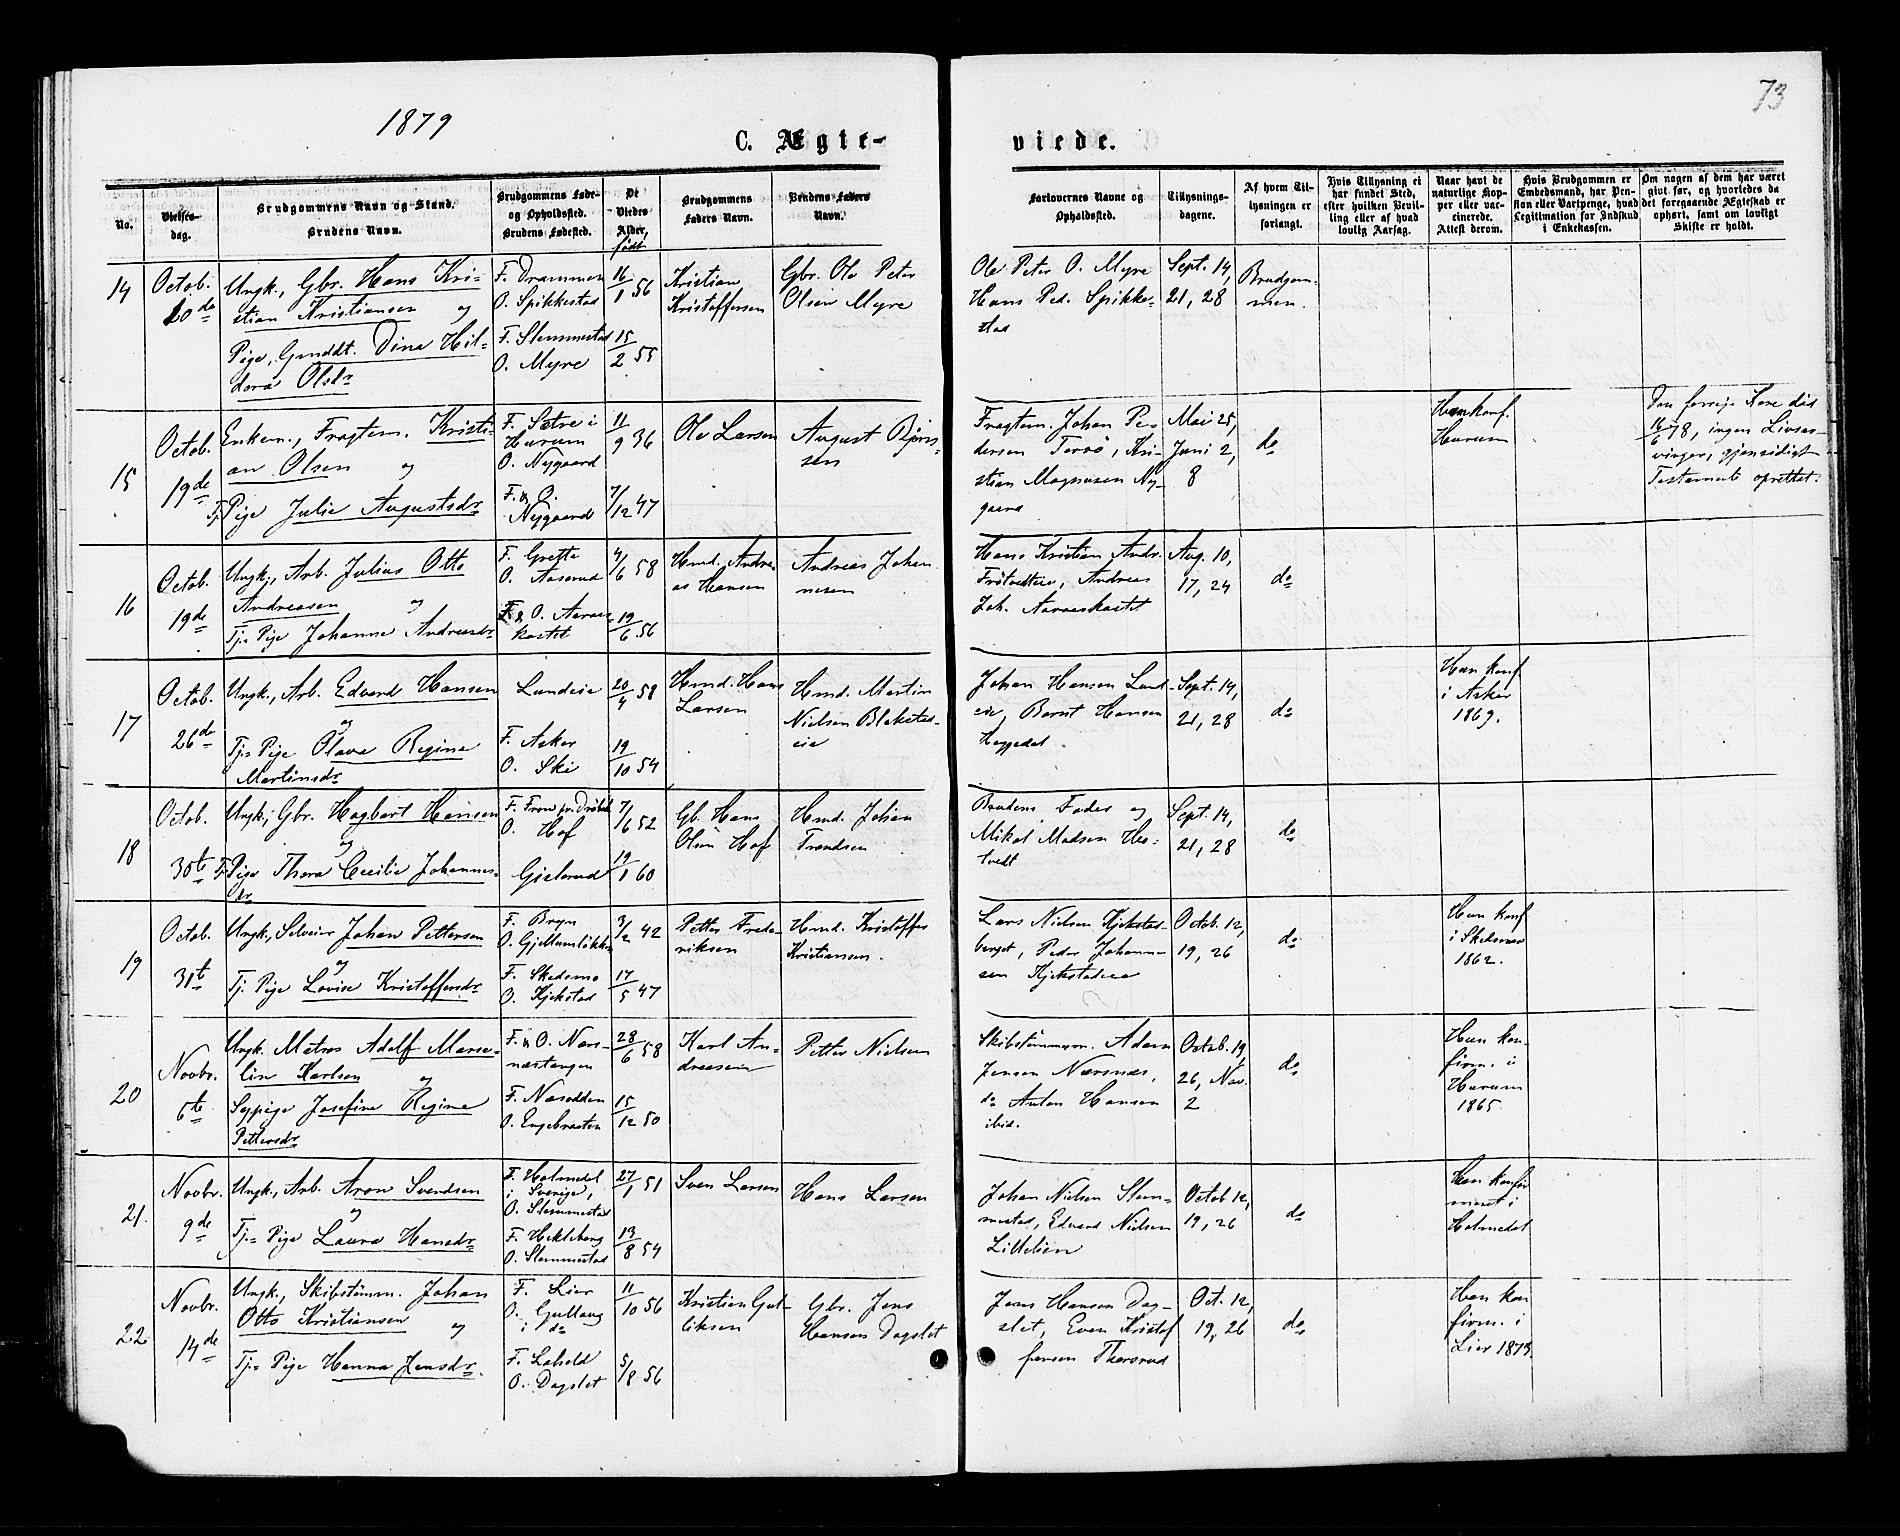 1879
73
C. Ægte-
viede.
No.
Vielses-
dag.
Brudgommens Navn og Stand.
Brudens Navn.
Brudgommens Føde-
og Opholdssted.
Brudens Fødested.
De
Viedes
Alder,
født
Brudgommens
Faders Navn.
Brudens Faders
Navn.
Forlovernes Navne og
Opholdssted.
Tillysnings-
dagene.
Af hvem Til-
lysningen er
forlangt.
Hvis Tillysning ei
har fundet Sted,
efter hvilken Bevil-
ling eller af hvad
lovlig Aarsag.
Naar havt de
naturlige Kop-
per eller vac-
cinerede.
Attest derom.
Hvis Brudgommen er
Embedsmand, har Pen-
sion eller Vartpenge, hvad
Legitimation for Indskud
i Enkekassen.
Om nogen af dem har været
gift før, og hvorledes da
det foregaaende Ægteskab er
ophørt, samt om lovligt
Skifte er holdt.
14
Octob.
10de
Ungk., Gbr. Hans Kri-
stian Kristiansen og
Pige, Gmddt. Dina Hil-
dora Olsdr
F. Drammen
O. Spikkestad
F. Slemmestad
O. Myre
16/1 56
15/2 55
Kristian
Kristoffersen
Gbr. Ole Peter
Olsen Myre
Ole Peter O. Myre
Hans Ped. Spikke-
stad
Sept. 14,
21, 28
Brudgom-
men.
15
Octob.
19de
Enkem., Fragtem. Kristi-
an Olsen og
Tj. Pige Julie Augustsdr
F. Sætre i
Hurum
O. Nygaard
F. & O.
Nygaard
11/9 36
7/12 47
Ole Larsen
August Bjørn-
sen
Fragtem. Johan Pe-
dersen Torvø, Kri-
stian Magnusen Ny-
gaard
Mai 25,
Juni 2,
8
do
Han konf.
Hurum
Den forrige Kone død
16/6 78, ingen Livsar-
vinger, gjensidigt
Testamente oprettet.
16
Octob.
19de
Ungk., Arb. Julius Otto
Andreasen og
Tj. Pige Johanne Andreasdr
F. Grette
O. Aaserud
F. & O. Aaraas-
kastet
4/6 58
19/6 56
Hmd. Andre-
as Hansen
Andreas Johan-
nesen
Hans Kristian Andr.
Frøtvedteie, Andreas
Joh. Aaraaskastet
Aug. 10,
17, 24
do
17
Octob.
26de
Ungk., Arb. Edvard Hansen
og
Tj. Pige Olava Regine
Martinsdr
Lundeie
F. Asker
O. Ski
20/4 58
19/10 54
Hmd. Hans
Larsen
Hmd. Martin
Nielsen Blakstad-
eie
Johan Hansen Lund-
eie, Bernt Hansen
Heggedal.
Sept. 14,
21, 28
do
Hun konf
i Asker
1869.
18
Octob.
30te
Ungk., Gbr. Hagbart Hansen
og
Tj. Pige Thora Cecilie Johannes-
dr
F. Fron pr. Drøbak
O. Hof
Gislerud
7/6 52
19/1 60
Gb. Hans
Olsen Hof
Hmd. Johan
Trondsen
Brudens Fader og
Mikal Madsen He-
tvedt
Sept. 14,
21, 28
do
19
Octob.
31te
Ungk., Johan Pettersen
og
Tj. Pige Lovise Kristoffersdr
F. Bryn
O. Gjellumløkken
F. Skedsmo
O. Kjekstad
3/2 42
17/5 47
Petter Frede-
riksen
Hmd. Kristoffer
Kristiansen.
Lars Nielsen Kjekstad-
berget, Peder Johanne-
sen Kjekstadeie
Octob. 12,
19, 26
do
Hun konf
i Skedsmo
1862.
20
Novbr.
6te
Ungk. Matros Adolf Marse-
lin Karlsen og
Sypige Josefine Regine
Pettersdr
F. & O. Nærs-
næstangen
F. Næsodden
O. Engebraaten
28/6 58
15/12 50
Karl An-
dreasen
Petter Nielsen
Skibstømmerm. Adam
Jensen Nærsnæs,
do Anton Hansen
ibid.
Octob. 19,
26, Nov.
2
do
Hun kon-
firm. i
Hurum
1865.
21.
Novbr.
9de
Ungk., Arb. Aron Svendsen
og
Tj. Pige Laura Hansdr
F. Holmedal
i Sverige,
O. Slemmestad
F. Hekleberg
O. Slemmestad
27/1 51
13/8 54
Sven Larsen
Hans Larsen
Johan Nielsen Slem-
mestad, Edvard Nielsen
Littelien
Octob 12,
19, 26
do
Han konfir-
meret i
Holmedal
22
Novbr.
14de
Ungk., Skibstømm. Johan
Otto Kristiansen og
Tj. Pige Hanna Jensdr.
F. Lier
O. Gullaug
i do
F. Lahelld
O. Dagslet
11/10 56
5/8 56
Kristian Gul-
liksen
Gbr. Jens
Hansen Dagslet
Jens Hansen Dag-
slet, Even Kristof
fersen Thorsrud
Oct. 12,
19, 26
do
Han kon
firm. i
Lier 1873.